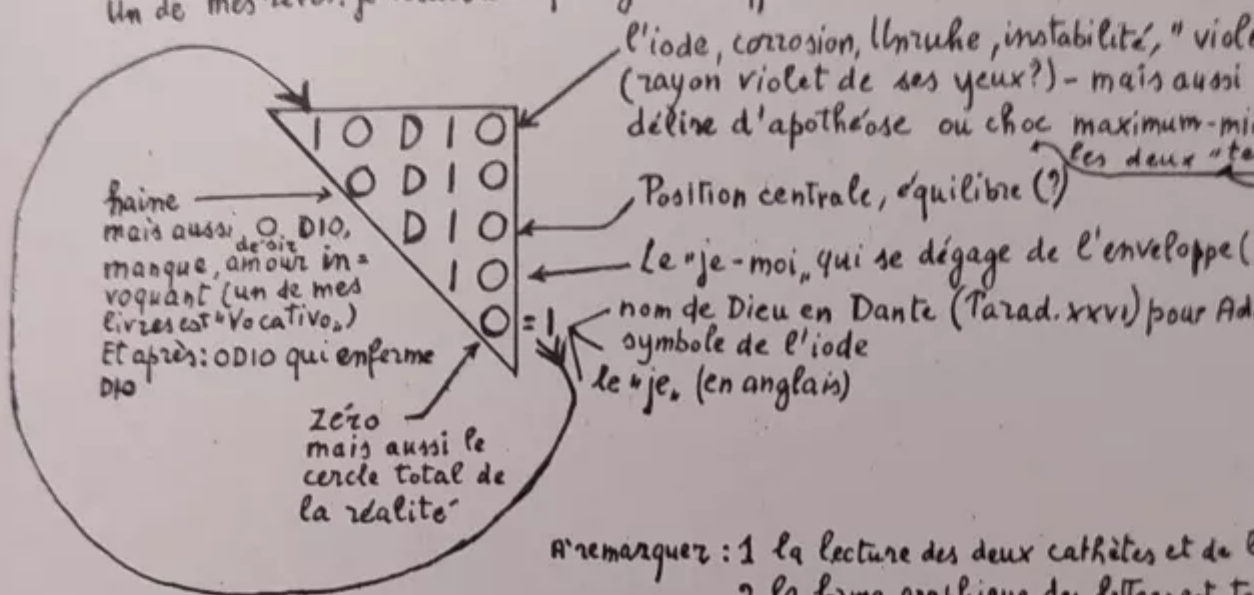 Un de mes
l'iode, corrosion, Unruhe, instabilité, "viol
(rayon violet de ses yeux?) - mais aussi
délire d'apothéose ou choc maximum-mi
les deux "te
I O D I O
O D I O
D I O
I O
O = 1
haine
mais aussi O, DIO,
désir
manque, amour in=
voquant (un de mes
livres est "Vocativo„)
Et après: ODIO qui enferme
DIO
Position centrale, équilibre (?)
Le "je-moi„ qui se dégage de l'enveloppe (
nom de Dieu en Dante (Parad. XXVI) pour Ad
symbole de l'iode
le "je„ (en anglais)
zéro
mais aussi le
cercle total de
la réalité
A remarquer : 1 la lecture des deux cathètes et de l
2 la forme graphique des lettres